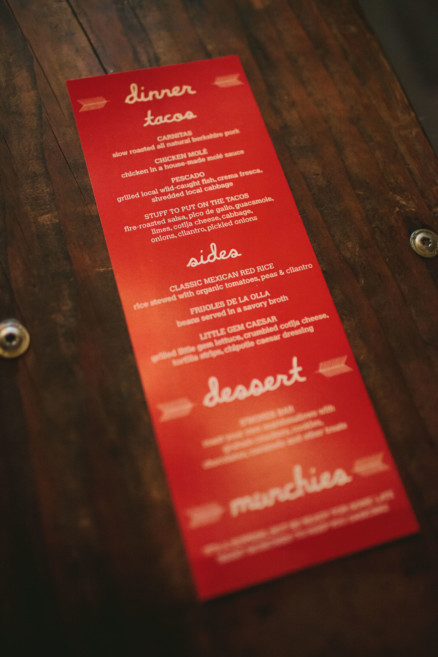 dinner
tacos
CARNITAS
slow roasted all natural berkshire pork
CHICKEN MOLÉ
chicken in a house-made molé sauce
PESCADO
grilled local wild-caught fish, crema fresca,
shredded local cabbage
STUFF TO PUT ON THE TACOS
fire-roasted salsa, pico de gallo, guacamole,
limes, cotija cheese, cabbage,
onions, cilantro, pickled onions
sides
CLASSIC MEXICAN RED RICE
rice stewed with organic tomatoes, peas & cilantro
FRIJOLES DE LA OLLA
beans served in a savory broth
LITTLE GEM CAESAR
grilled little gem lettuce, crumbled cotija cheese,
tortilla strips, chipotle caesar dressing
dessert
S'MORES BAR
roast your own marshmallows with
graham crackers, cookies,
chocolate, caramels and other treats
munchies